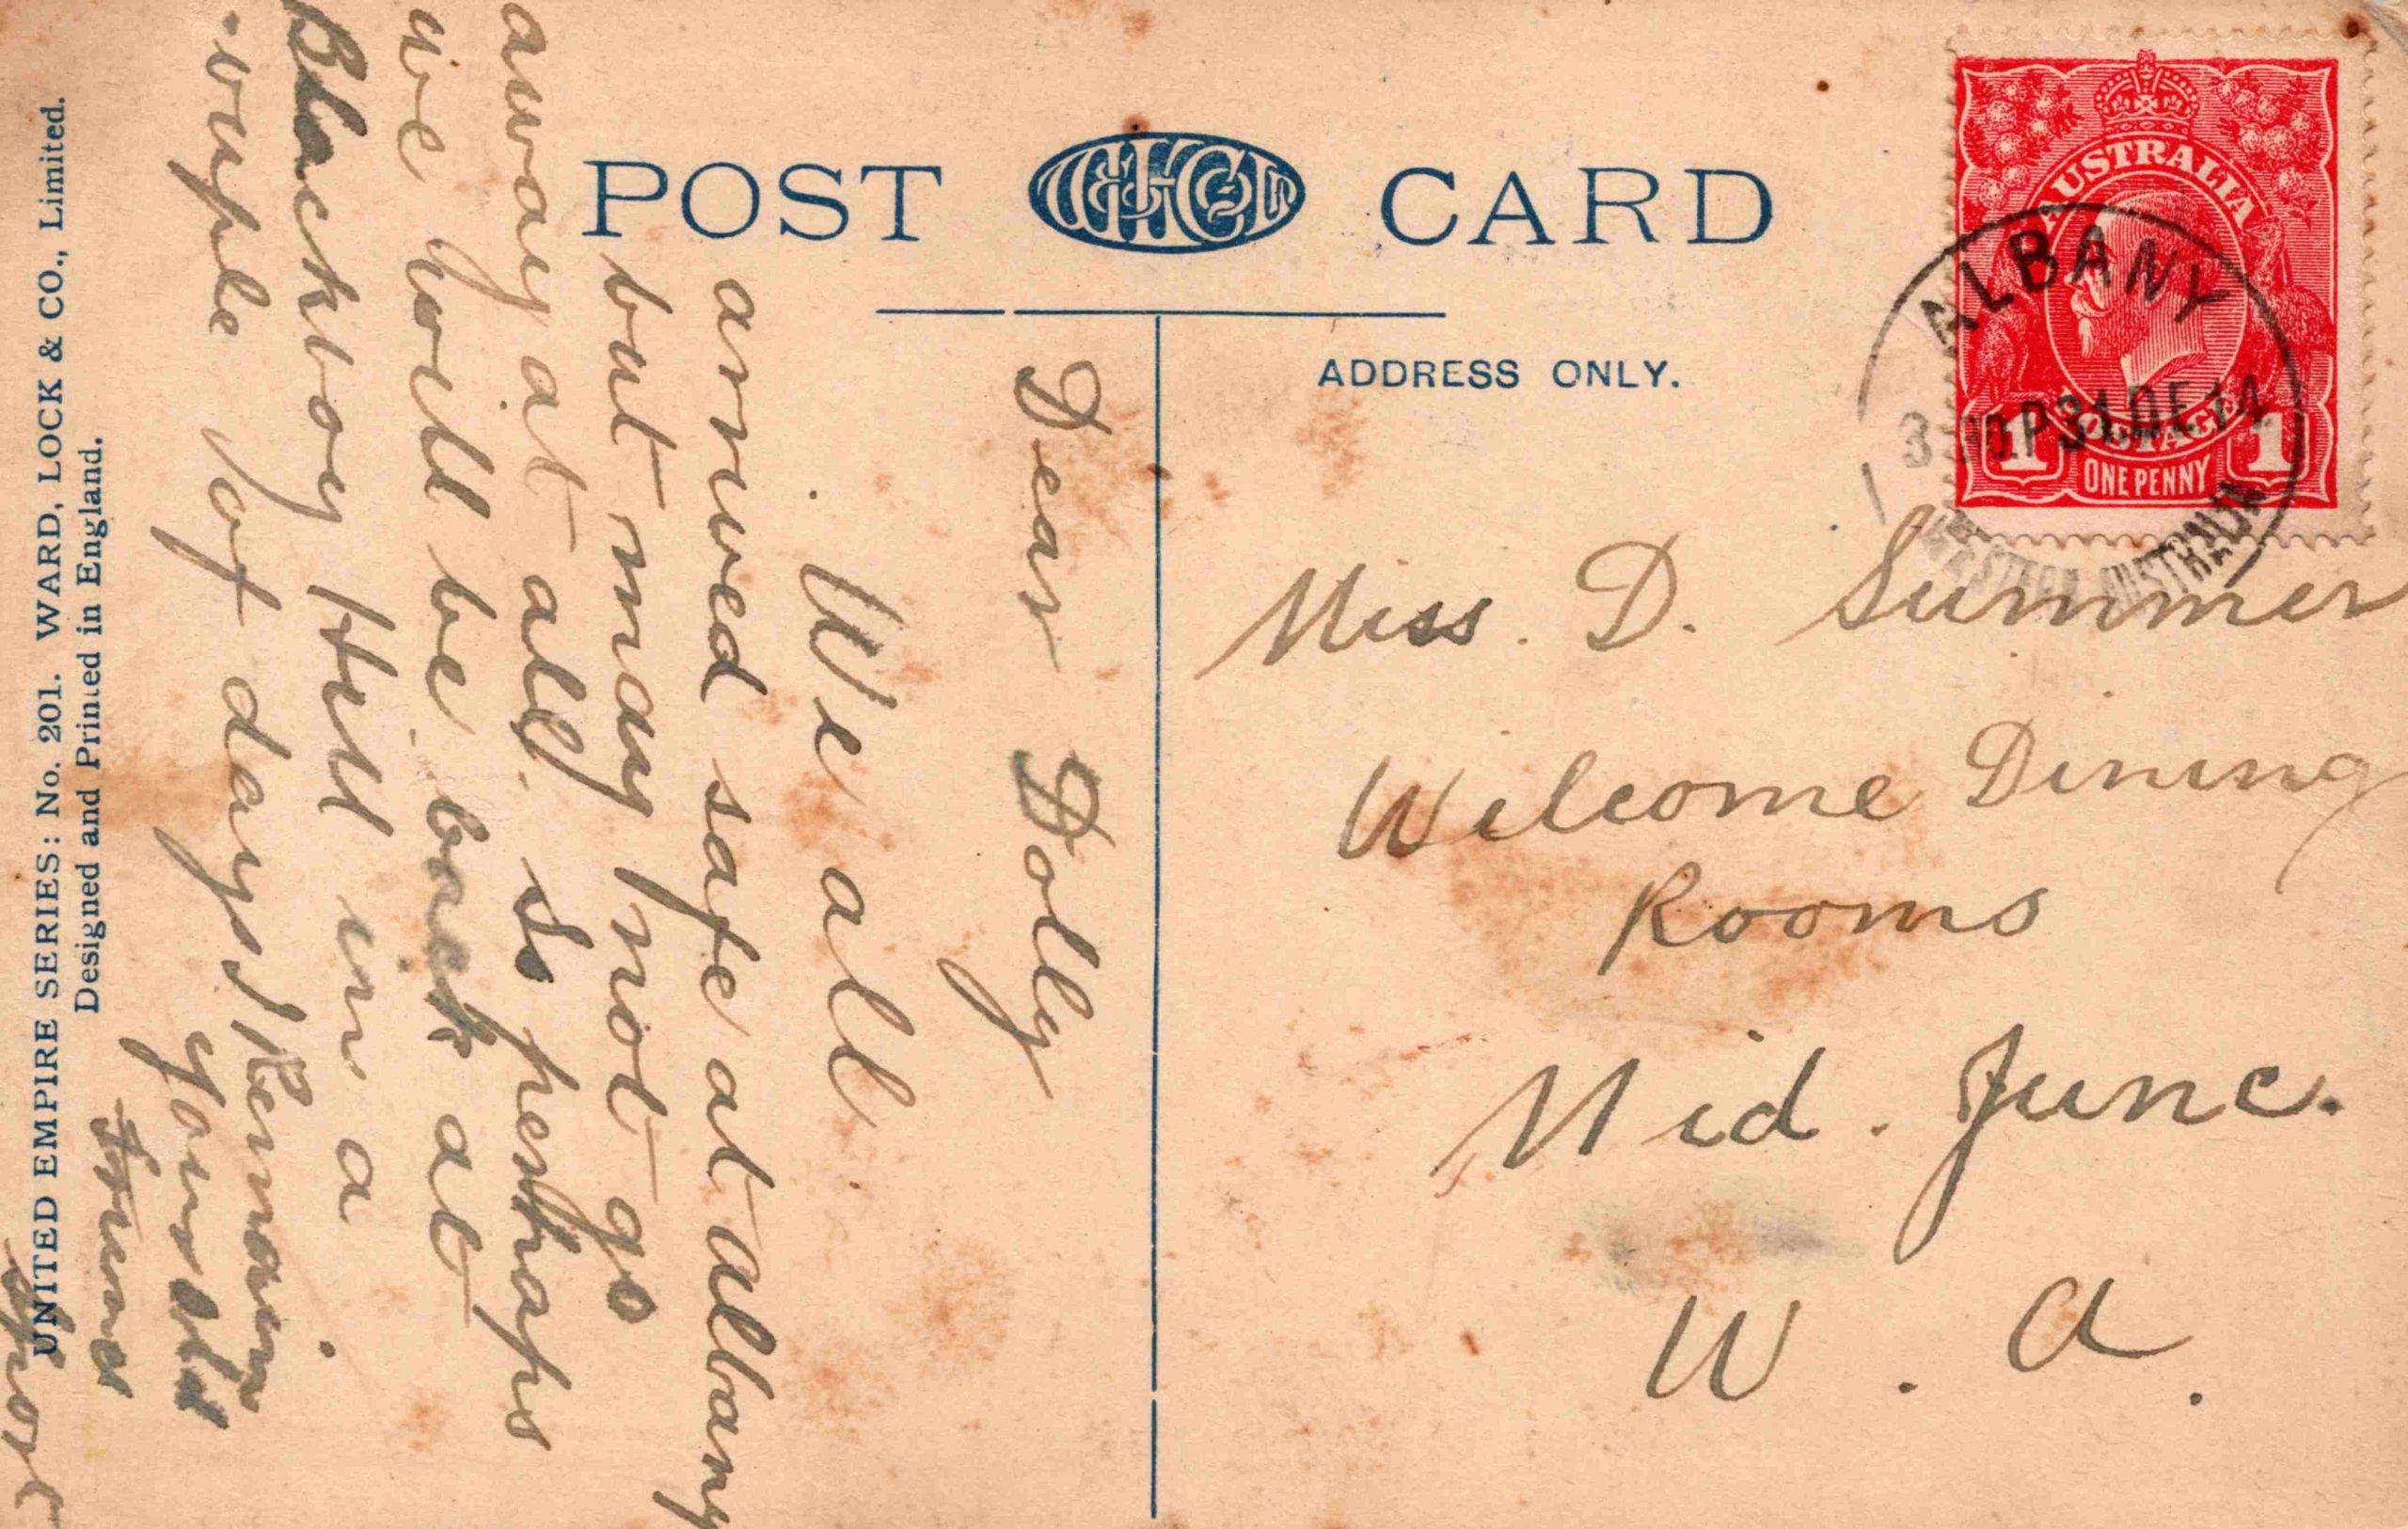 POST W.L. & Co. Ld CARD
ADDRESS ONLY.
AUSTRALIA
POSTAGE
1 ONE PENNY 1
ALBANY
31 DE 14
WESTERN AUSTRALIA
Miss. D. Summer
Welcome Dining
Rooms
Mid. Junc.
W. A.
Dear Dolly
We all
arrived safe at albany
but may not go
away at all. So perhaps
we will be back at
Blackboy Hill in a
couple of days I Remain
your old
Sport
UNITED EMPIRE SERIES: No. 201. WARD, LOCK & CO., Limited.
Designed and Printed in England.